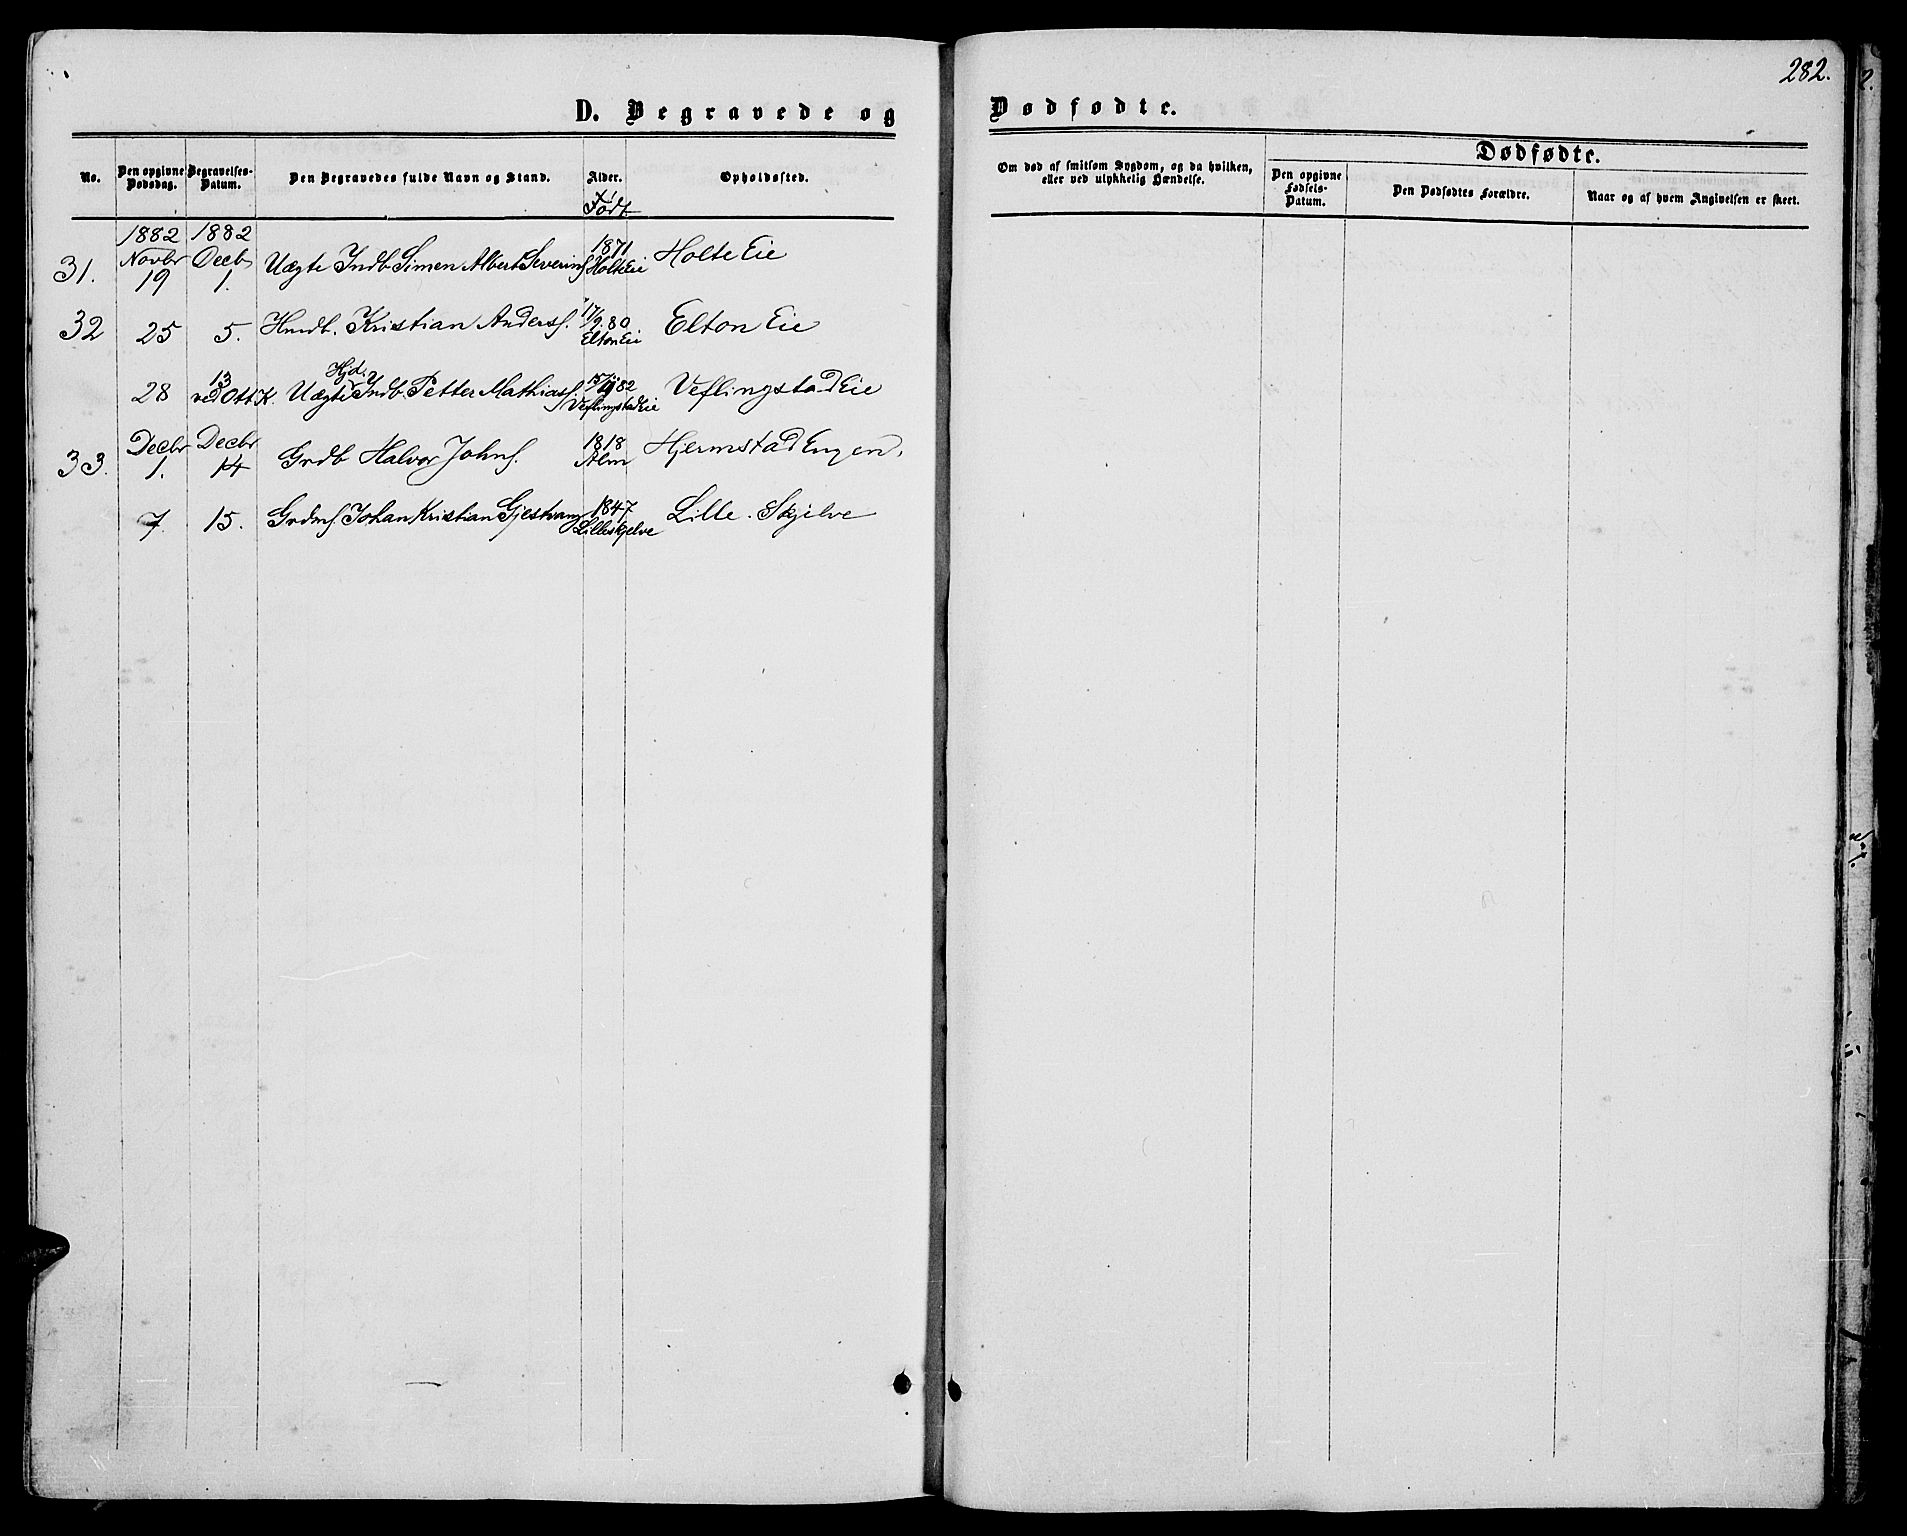 282.
D. Begravede og Dødfødte.
No.
Den opgivne Dødsdag.
Begravelses-Datum.
Den Begravedes fulde Navn og Stand.
Alder.
Født
Opholdssted.
Om død af smitsom Sygdom, og da hvilken,
eller ved ulykkelig Hændelse.
Dødfødte.
Den opgivne Fødsels-Datum.
Den Dødfødtes Forældre.
Naar og af hvem Angivelsen er skeet.
1882 1882
31. Novbr 19 Decb 1. Uægte Indb. Simen Albert Severins. 1871 Holte Eie Holte Eie
32 25 5. Hmdb. Kristian Anders. 17/9 80 Elton Eie Elton Eie
28 13 ved Ott. K. Uægte Hjd. Indb. Petter Mathias. 82 Veflingstad Eie Veflingstad Eie
33. Decbr 1. Decbr 14 Grdb Halvor Johns. 1818 Alm Hjermstad Engen.
7. 15. Grdms. Johan Kristian Gjestvang 1847 Lilleskjelve Lille-Skjelve